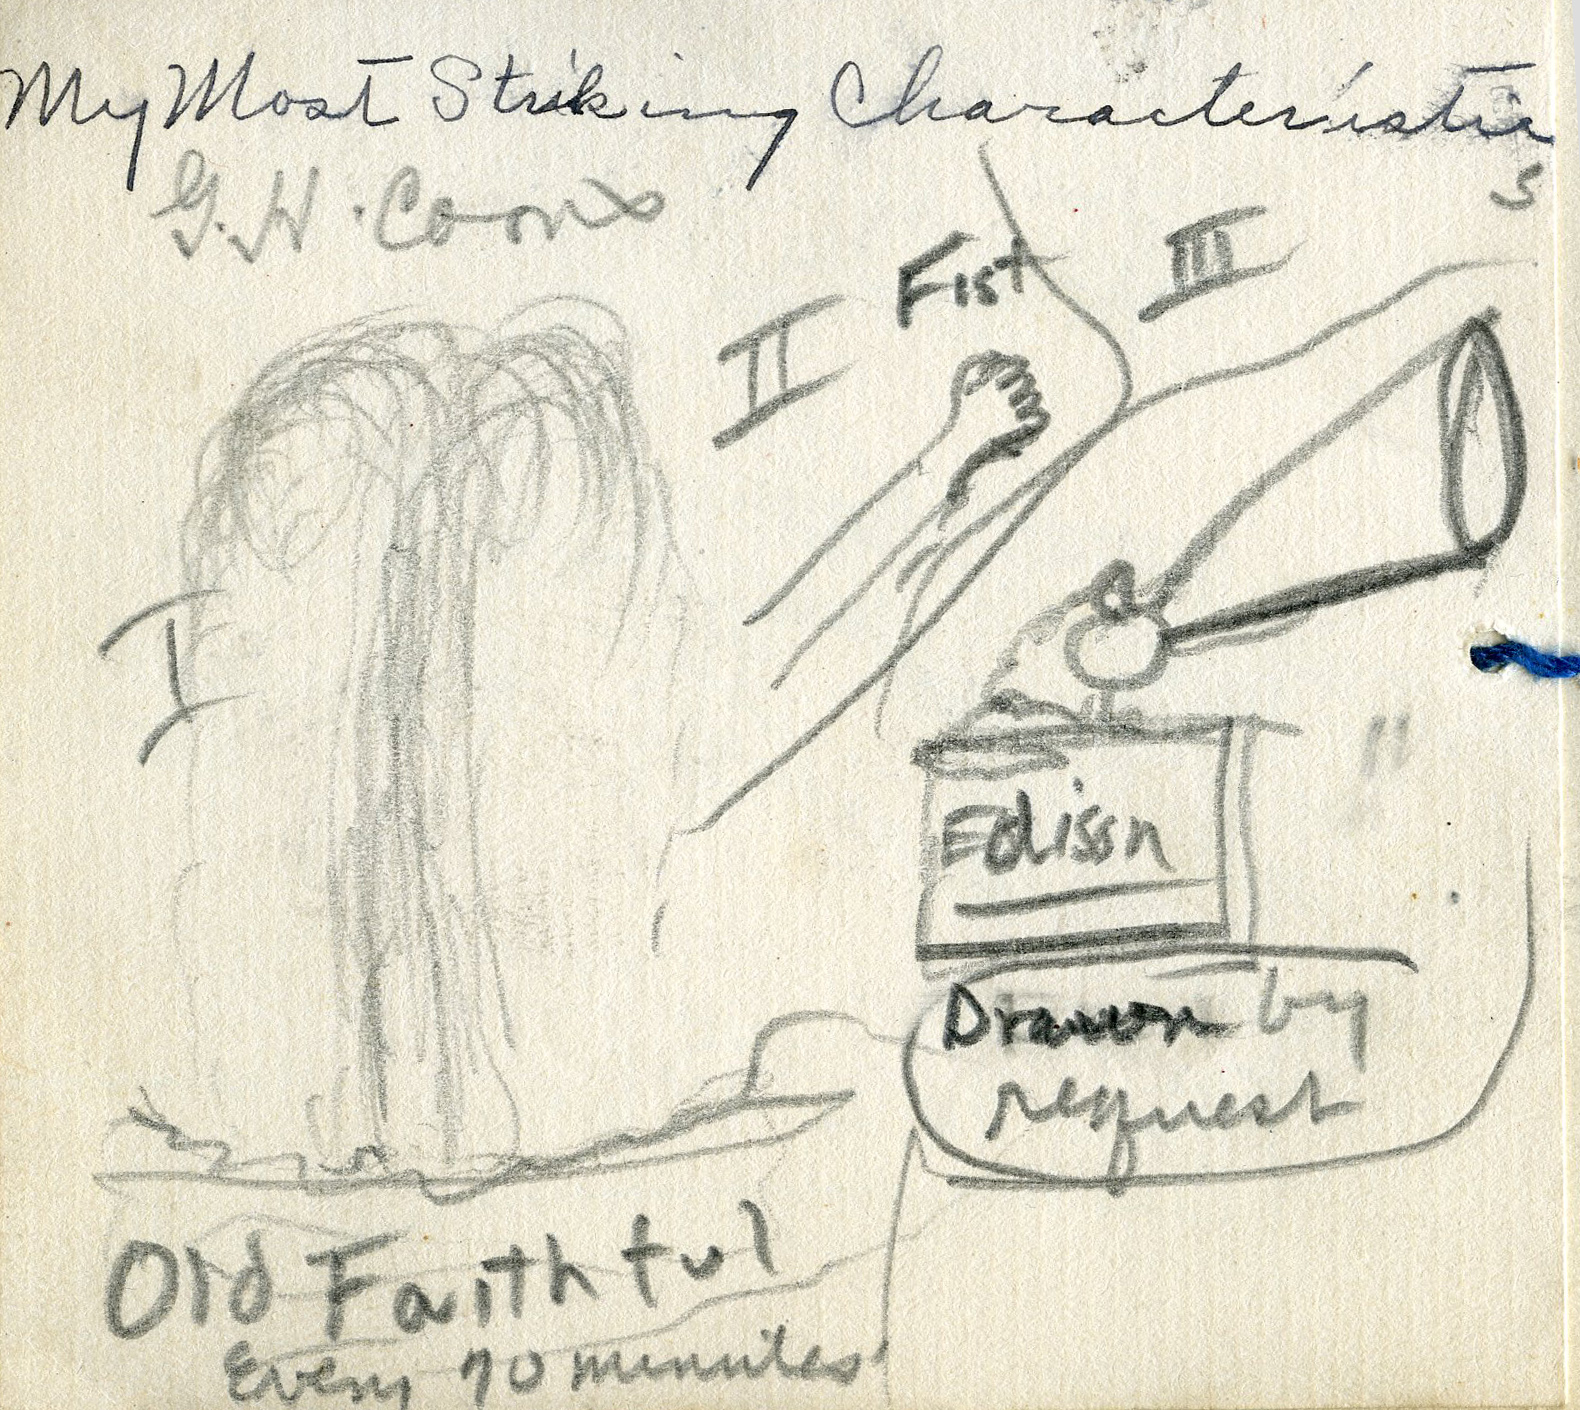 My Most Striking Characteristic
s
G. H. Coons
I
II
Fist
III
Edison
Drawn by
request
Old Faithful
Every 70 minutes